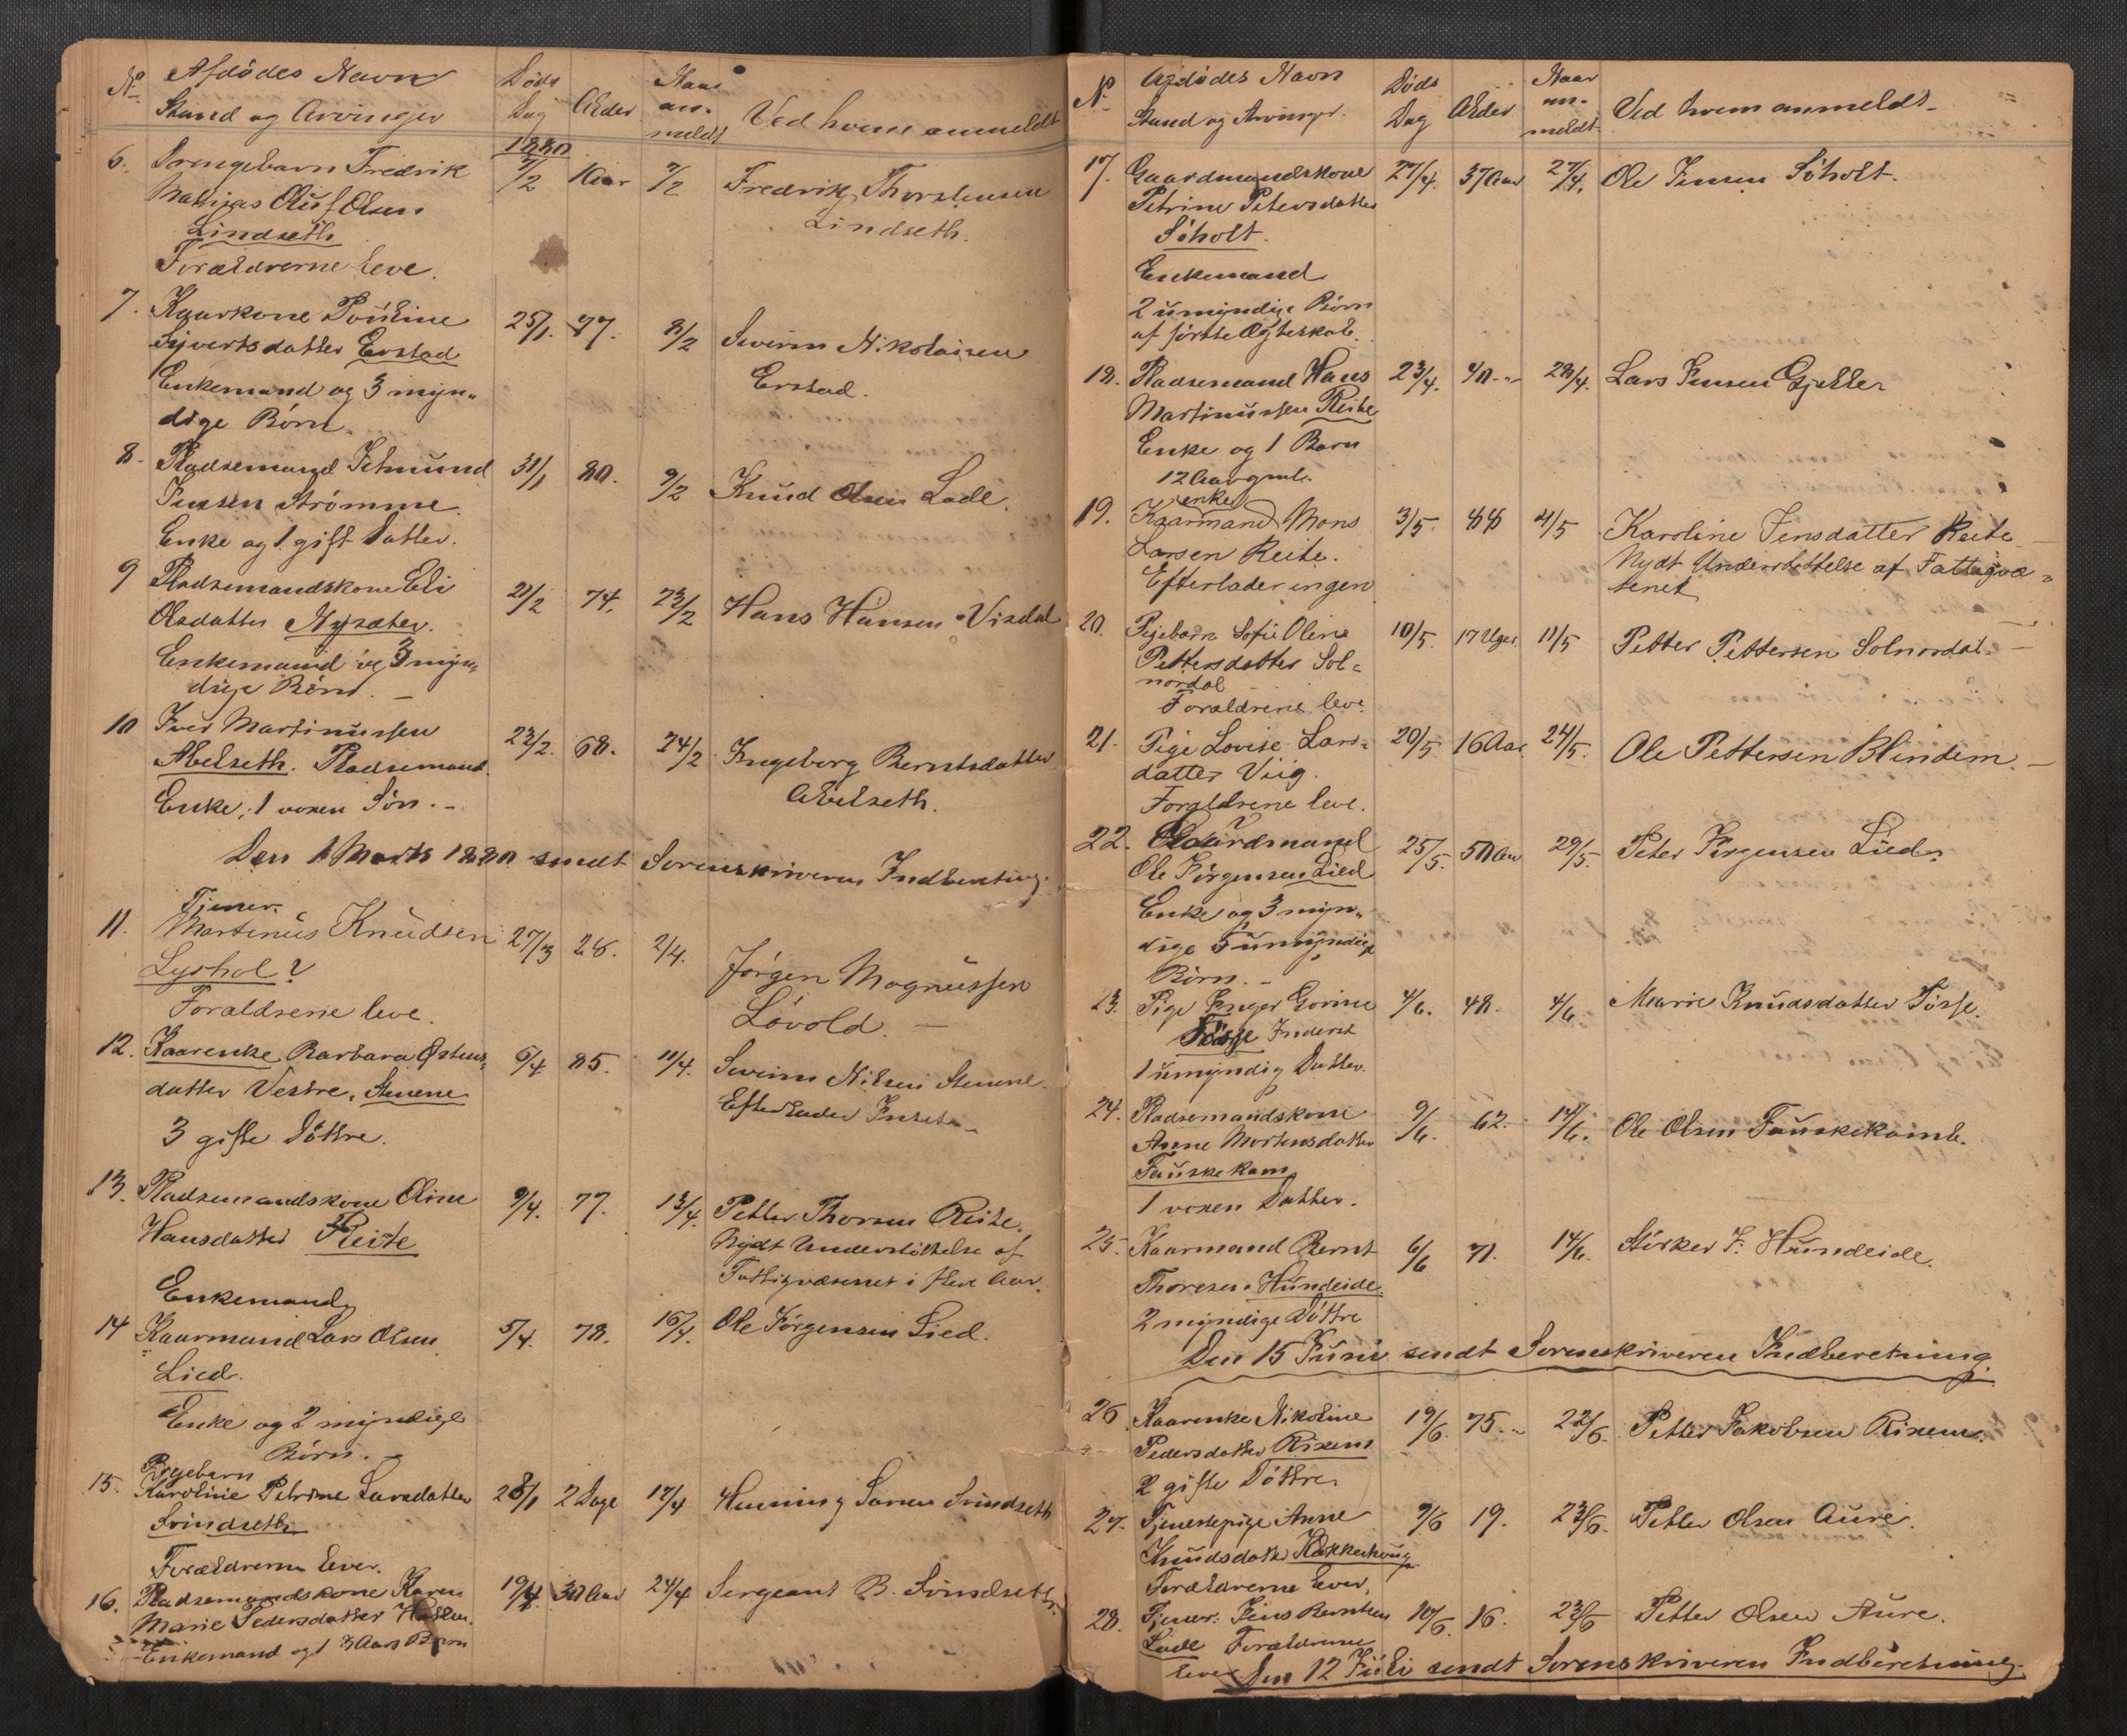 No Afdödes Navn Döds Alder Naar Ved hvem anmeldt
Stand og Arvinger Dag an-
meldt
1880
6. Drengebarn Fredrik 7/2 1 Aar 7/2 Fredrik Thorstensen
Mathias Oluf Olsen Lindseth.
Lindseth
Forældrerne leve.
7. Kaarkone Pouline 25/1. 77. 8/2 Severin Nikolaisen
Sjvertsdatter Erstad Erstad.
Enkemand og 3 myn-
dige Börn
8. Pladsemand Selmund 31/1 80. 9/2 Knud Olsen Lade.
Jensen Strömme.
Enke og 1 gift Datter.
9 Pladsemandskone Eli 21/2 74. 23/2 Hans Hansen Visdal
Olsdatter Nysæter.
Enkemand og 3 myn-
dige Börn. –
10 Iver Martinussen 22/2. 68. 24/2 Ingeborg Berntsdatter
Abelseth. Pladsemand. Abelseth.
Enke, 1 voxen Sön. –
Den 1 Marts 1880 sendt Sorenskriveren Indberetning.
Tjener.
11. Martinus Knudsen 27/3 28. 2/4. Jörgen Magnussen
Lyshol? Lövold. –
Foraldrene leve.
12. Kaarenke Barbara Østens- 6/4 85. 11/4. Severin Nilsen Stenene.
datter Vestre, Stenene Efterlader Intet. –
3 gifte Döttre.
13. Pladsemandskone Oline 9/4. 77. 13/4. Petter Thorsen Reite.
Hansdatter Reite Nydt Understöttelse af
Fattigvæsenet i flere Aar.
Enkemand
14 Kaarmand Lars Olsen 5/4. 78. 16/4. Ole Jörgensen Lied.
Lied.
Enke og 2 myndige
Börn. –
Pigebarn
15. Karoline Petrine Larsdatter 28/1 2 Dage 17/4 Henning Larsen Svindseth
Svindseth
Forældrerne lever.
16. Pladsemandskone Karen 19/4 30 Aar 24/4 Sergeant B. Svindseth.
Marie Pedersdatter
Enkemand og 1 3 Aars Barn
No Afdödes Navn Döds Alder Naar Ved hvem anmeldt
Stand og Arvinger. Dag an-
meldt
17. Gaardmandskone 27/4. 37 Aar 27/4. Ole Jensen Söholt.
Petrine Petersdatter
Söholt.
Enkemand
2 umyndige Börn
af förste Ægteskab.
18. Pladsemand Hans 23/4. 40 – 28/4. Lars Jensen Gjelle
Martinussen Reite
Enke og 1 Barn
12 Aar gml.
enke
19. Kaarmand Mons 3/5. 88 4/5 Karoline Jensdatter Reite
Larsen Reite. Nydt Understöttelse af Fattigvæ-
Efterlader ingen senet
20. Pigebarn Sofie Oline 10/5. 17 Uger 11/5 Petter Pettersen Solnordal. –
Pettersdatter Sol-
nordal
Foraldrene leve.
21. Pige Lovise Lars- 20/5. 16 Aar. 24/5. Ole Pettersen Blindem. –
datter Viig.
Foraldrene leve.
22. Gaardmand 25/5. 50 Aar 29/5. Peter Jörgensen Lied.
Ole Jörgensen Lied
Enke og 3 myn-
dige umyndige
Börn. –
23. Pige Inger Gorine 4/6. 48. 4/6 Marie Knudsdatter Tösse.
Tösse Inderst
1 umyndig Datter.
24. Pladsemandskone 9/6. 62. 12/6. Ole Olsen Fauskekamb.
Anne Mortensdatter
Fauskekam
1 voxen Datter.
25. Kaarmand Bernt 6/6 71. 14/6. Störker J. Hundeide.
Thoresen Hundeide.
2 myndige Döttre
Den 15 Juni sendt Sorenskriveren Indberetning.
26. Kaarenke Nikoline 19/6. 75. – 22/6. Petter Jakobsen Rixem.
Pedersdatter Rixem
2 gifte Döttre.
27. Tjenestepige Anne 9/6 19. 23/6. Petter Olsen Aure.
Knudsdatter
Forældrerne lever.
28. Tjener. Jens Berntsen 10/6. 16. 23/6 Petter Olsen Aure.
Lade Forældrerne
lever Den 12 Juli sendt Sorenskriveren Indberetning.